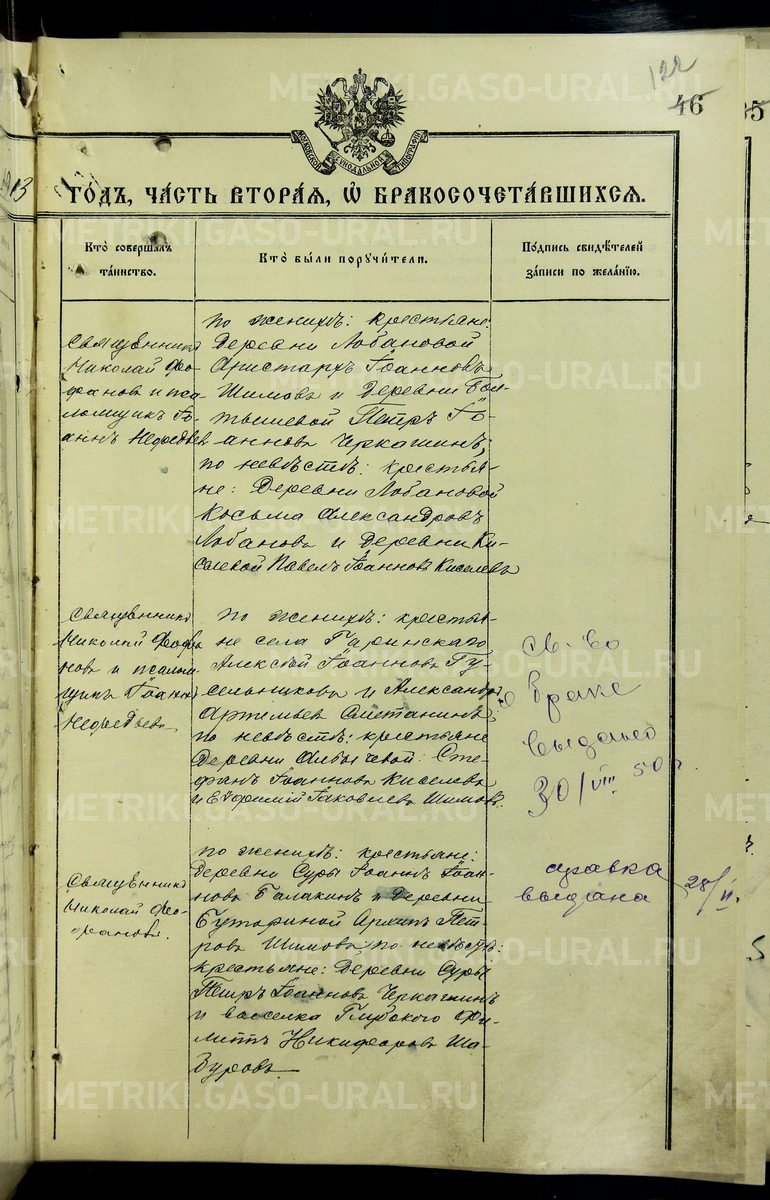 122
46
МОСКОВСКОЙ СѴНОДАЛЬНОЙ ТИПОГРАФІИ
ГО́ДЪ, ЧА́СТЬ ВТОРА́Я, Ѡ҆ БРАКОСОЧЕТА́ВШИХСЯ.
Кто̀ соверша́лъ та́инство.
Кто̀ бы́ли порꙋчи́тели.
По́дпись свидѣ́телей за́писи по жела́нїю.
Священникъ
Николай Фео-
фановъ и пса-
ломщикъ Іо-
аннъ Нефедьев
по женихѣ: крестьяне:
Деревни Лобановой
Аристархъ Іоанновъ
Шимовъ и Деревни Бол-
тышевой Петръ Іо-
анновъ Черкашинъ;
по невѣстѣ: крестья-
не: Деревни Лобановой
Косьма Александровъ
Лобановъ и Деревни Ки-
селевой Павелъ Іоанновъ Киселевъ
Священникъ
Николай Феофа
новъ и псалом
щикъ Іоаннъ
Нефедьевъ
по женихѣ: крестья-
не села Гаринскаго
Алексѣй Іоанновъ Гу-
сельниковъ и Александръ
Артемьевъ Сметанинъ,
по невѣстѣ: крестьяне
Деревни Албычевой: Сте-
фанъ Іоанновъ Киселевъ
и Евфимій Іаковлевъ Шимовъ.
св-во
о браке
выдано
30/VIII 50 г.
Священникъ
Николай Фео-
фановъ.
по женихѣ: крестьяне:
Деревни Суры Іоаннъ Іоан-
новъ Балакинъ и Деревни
Бутариной Архипъ Пет-
ровъ Шимовъ, по невѣстѣ:
крестьяне: Деревни Суры
Петръ Іоанновъ Черкашинъ
и выселка Глубокого Фи-
липпъ Никифоровъ Ша-
зуровъ.
справка
выдана 28/II.
METRIKI.GASO-URAL.RU